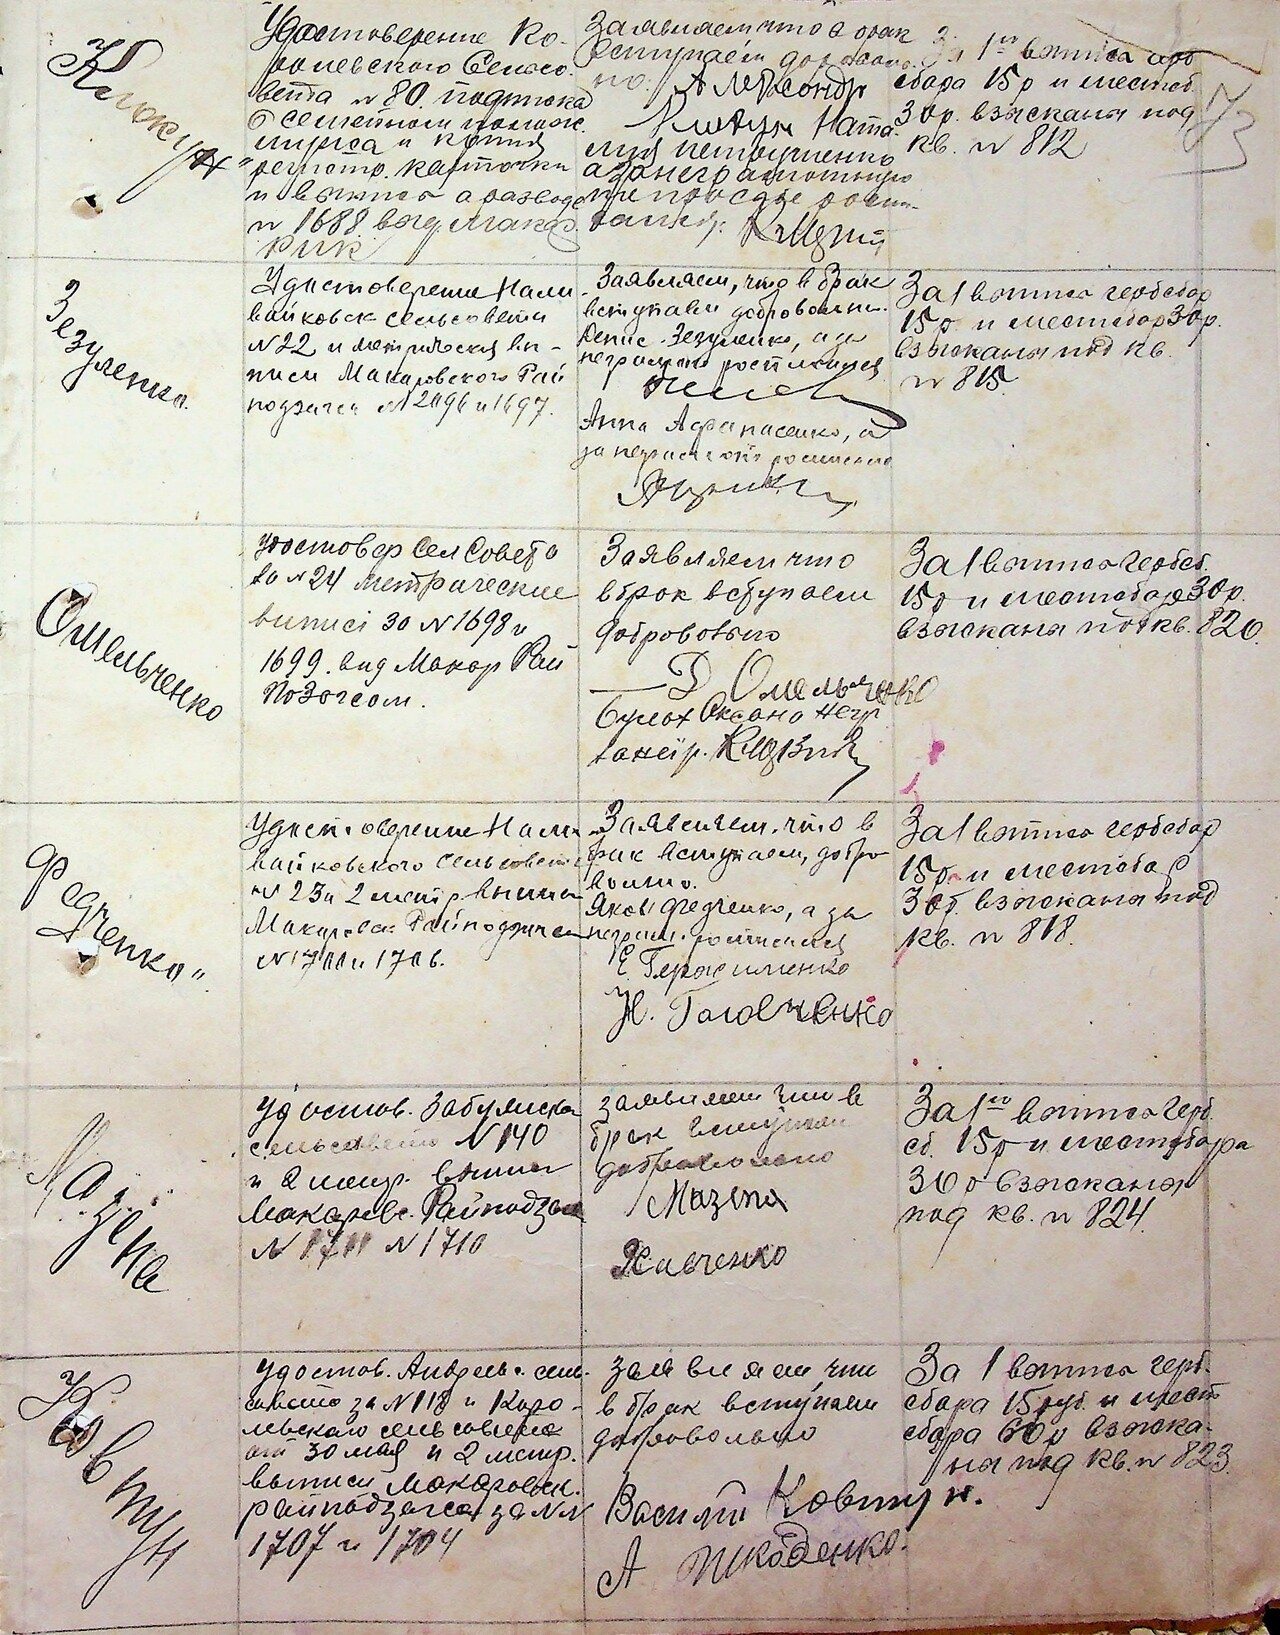 Клокун"
Удостоверение Ко-
ролевского Сельсо-
вета №80. подписка
о семейном полож.
и копия
регистр. карточки
и выпись о разводе
№ 1688 выд. Макар.
РИК
Заявляем что в брак
вступаем доброволь-
но.
Клокун Ната-
лия
а за неграмотную
по просьбе росп-
За 1ю выпись герб
сбора 15р и местсб.
30р. взыскани под
кв. № 812
73
Зезуленко.
Удостоверение Нали-
вайковск сельсовета
№22 и метрическия вы-
писи Макаровского Рай
подзагса №1696 и 1697.
Заявляем, что в брак
вступаем добровольно.
Денис Зезуленко, а за
неграмотн росписался
Анна Афанасенко, а
за неграмотн росписался
За 1 выпись гербсбор
15р и местсбор 30р.
взыскания под кв.
№ 815.
Омельченко
удостовер Сел Совета
за №24 метрические
виписі за №1698 и
1699. вид Макар Рай
ПоЗагсом.
Заявляем что
в брак вступаем
добровольно
Д Омельченко
Булах Оксана негр
За 1 выпись гербсб.
15р и местсбора 30р.
взыскания под кв. 820
Федченко"
Удост оверение Нали-
вайковского сельсовета
№ 23 и 2 метр. выписи
Макаровск Райподзагса
№ 1700 и 1706.
Заявляем, что в
брак вступаем, добро
вольно.
Яков Федченко, а за
неграмт. росписался
Е. Герасименко
Н. Головченко
За 1 выпись гербсбор
15р. и местсбора
30р. взыскания под
кв. № 818.
Мазепа
Удостов. Забуянск
сельсовета №140
и 2 метр. выписи
Макаров. Райподзагса
№ 1711 №1710
заявляем что в
брак вступаем
добровольно
Мазепа
Харченко
За 1ю выпись герб.
сб. 15р и местсбора
30р взыскания
под кв. № 824.
Ковтун
Удостов. Андреев. сель-
совета за №118 и Коро-
левского сельсовета
от 30 мая и 2 метр.
выписи Макаровск.
райподзагса за №№
1707 и 1704
заявляем что
в брак вступаем
добровольно
Василий Ковтун.
А Шкоденко.
За 1 выпись герб.
сбора 15руб. и мест
сбора 60р взыска-
ния под кв. № 823.